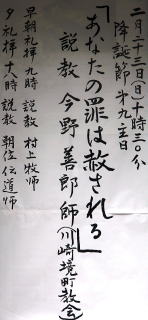 二月二十三日(日)十時三〇分
降誕節第九主日
「あなたの罪は赦される」
説教 今野善郎師(川崎境町教会)
早朝礼拝九時 説教 村上牧師
夕礼拝十八時 説教 朝位伝道師